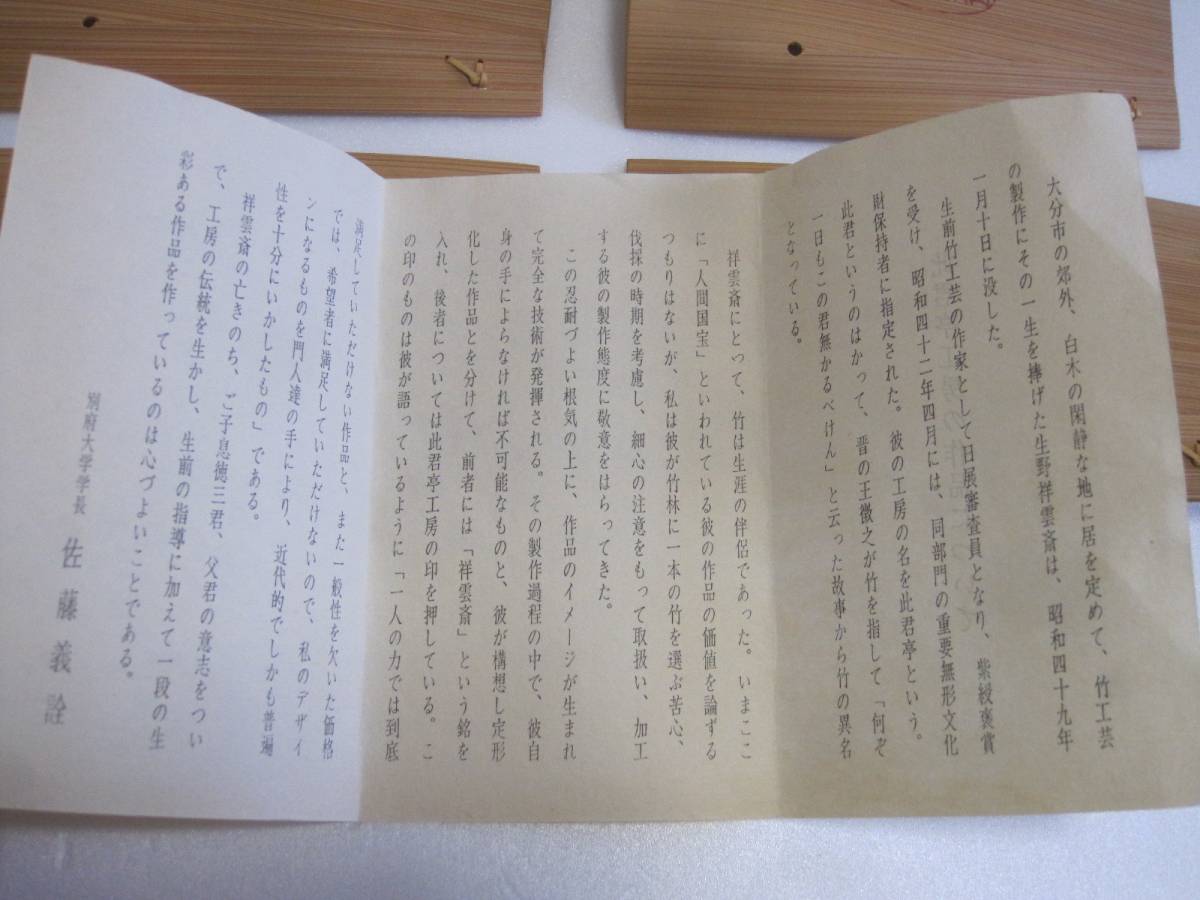 大分市の郊外、白木の閑静な地に居を定めて、竹工芸
の製作にその一生を捧げた生野祥雲斎は、昭和四十九年
一月十日に没した。
生前竹工芸の作家として日展審査員となり、紫綬褒賞
を受け、昭和四十二年四月には、同部門の重要無形文化
財保持者に指定された。彼の工房の名を此君亭という。
此君というのはかって、晋の王徽之が竹を指して「何ぞ
一日もこの君無かるべけん」と云った故事から竹の異名
となっている。
祥雲斎にとって、竹は生涯の伴侶であった。いまここ
に「人間国宝」といわれている彼の作品の価値を論ずる
つもりはないが、私は彼が竹林に一本の竹を選ぶ苦心、
伐採の時期を考慮し、細心の注意をもって取扱い、加工
する彼の製作態度に敬意をはらってきた。
この忍耐づよい根気の上に、作品のイメージが生まれ
て完全な技術が発揮される。その製作過程の中で、彼自
身の手によらなければ不可能なものと、彼が構想し定形
化した作品とを分けて、前者には「祥雲斎」という銘を
入れ、後者については此君亭工房の印を押している。こ
の印のものは彼が語っているように「一人の力では到底
満足していただけない作品と、また一般性を欠いた価格
では、希望者に満足していただけないので、私のデザイ
ンになるものを門人達の手により、近代的でしかも普遍
性を十分にいかしたもの」である。
祥雲斎の亡きのち、ご子息徳三君、父君の意志をつい
で、工房の伝統を生かし、生前の指導に加えて一段の生
彩ある作品を作っているのは心づよいことである。
別府大学学長 佐藤義詮